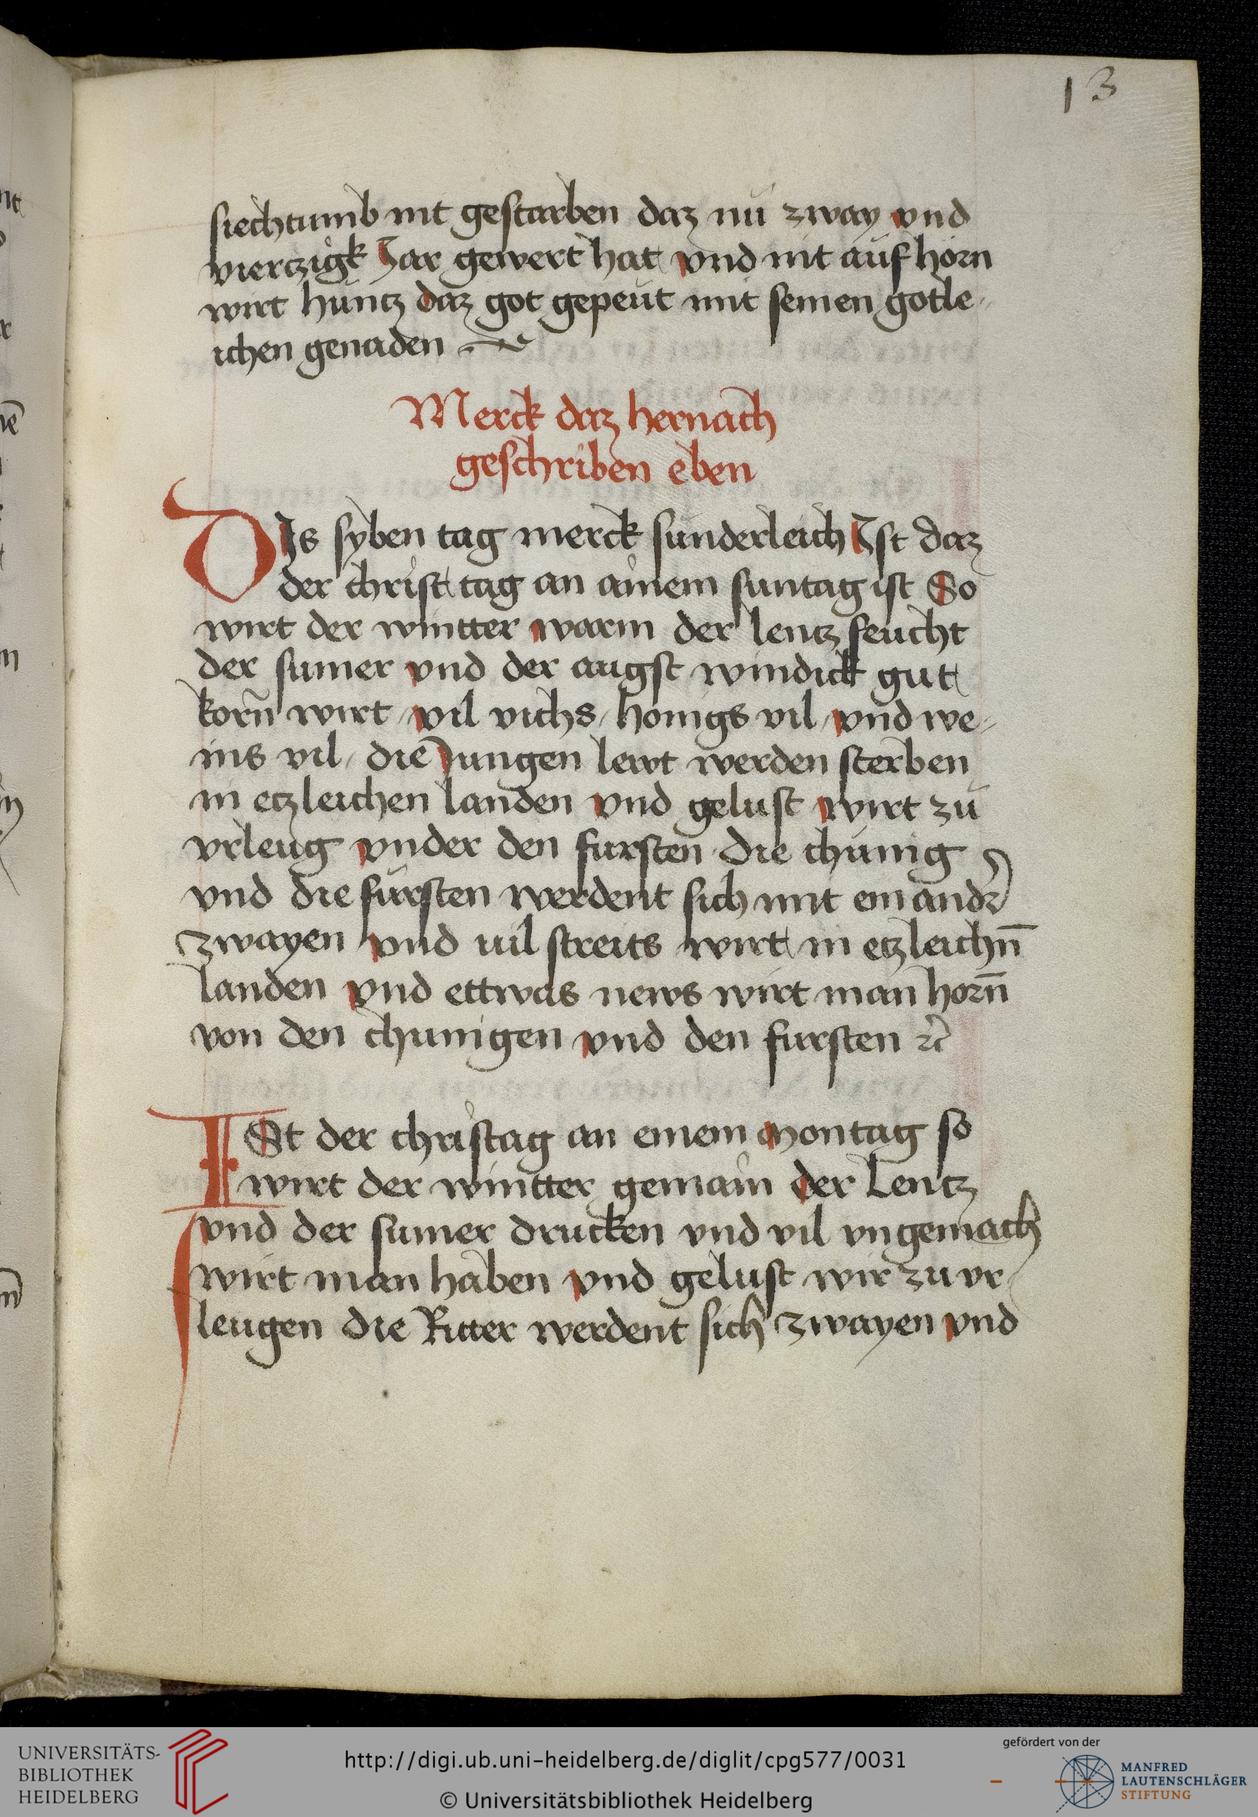 13
siechtumb nit gestarben daz nü zway vnd
vierczigk Jar gewert hat vnd nit aufhorn
wirt hüntz daz got gepeut mit seinen gotle-
ichen genaden
Merck daz hernach
geschriben eben
DIs syben tag merck sunderleich Ist daz
der christ tag an ainem suntag ist So
wirt der wintter warm der lentz feucht
der sumer vnd der augst windick gut
korn̄ wirt vil vichs honigs vil vnd we-
ins vil die Jungen lewt werden sterben
in etzleichen landen vnd gelust wirt zü
vrleug vnder den fursten die chünig
vnd die fürsten werdent sich mit ein andr̄
zwayen vnd uil streits wirt in etzleichn̄
landen vnd ettwas news wirt man horn̄
von den chunigen vnd den fursten ꝛc̄
ISt der christag an einem montag so
wirt der wintter gemain der Lentz
vnd der sumer drucken vnd vil vngemach
wirt man haben vnd gelust wir zu vr-
leugen die Ritter werdent sich zwayen vnd
UNIVERSITÄTS-
BIBLIOTHEK
HEIDELBERG
http://digi.ub.uni-heidelberg.de/diglit/cpg577/0031
© Universitätsbibliothek Heidelberg
gefördert von der
MANFRED
LAUTENSCHLÄGER
STIFTUNG